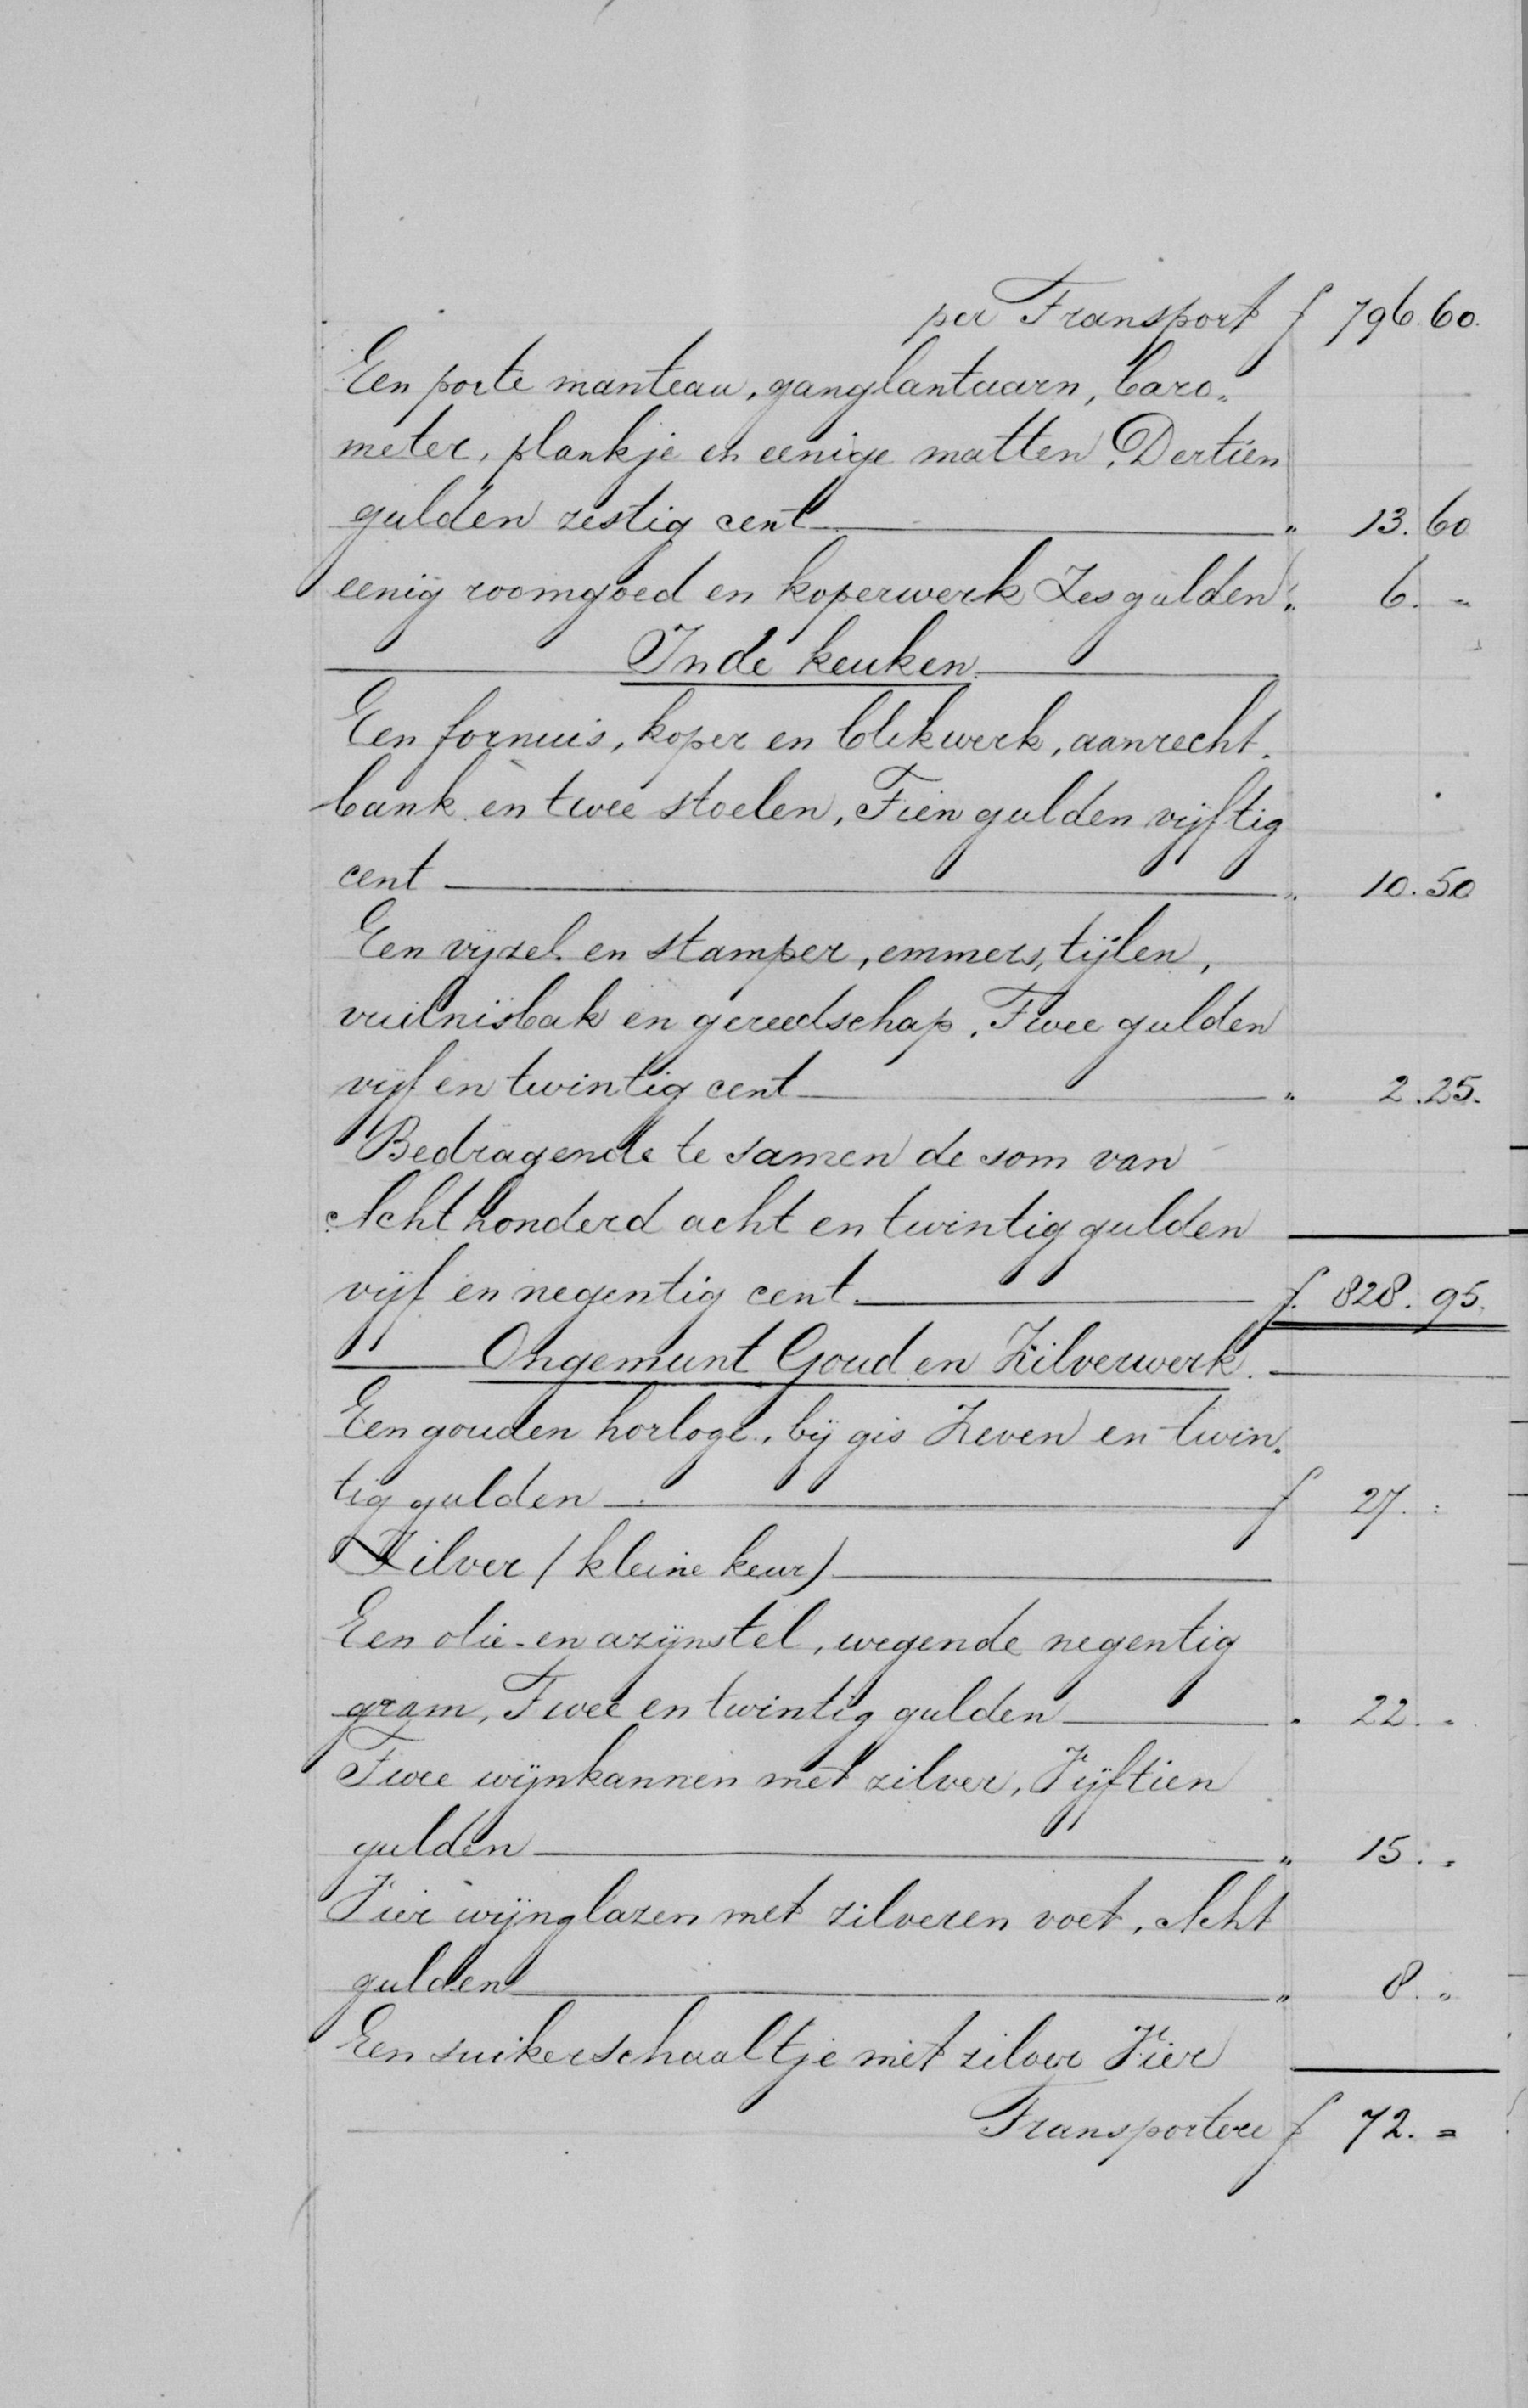 per Transport f 796.60.
Een porte manteau, ganglantaarn, baro„
meter, plankje en eenige matten, Dertien
gulden zestig cent „ 13.60
eenig roomgoed en koperwerk Zes gulden „ 6. „
In de keuken
Een fornuis, koper en blikwerk, aanrecht.
bank en twee stoelen, Tien gulden vijftig
cent „ 10.50
Een vijzel en stamper, emmers, tijlen,
vuilnisbak en gereedschap, Twee gulden
vijf en twintig cent „ 2.25.
Bedragende te samen de som van
Acht honderd acht en twintig gulden
vijf en negentig cent f. 828.95.
Ongemunt Goud en Zilverwerk.
Een gouden horloge, bij gis Zeven en twin„
tig gulden f 27. „
Zilver (kleine keur)
Een olie- en azijnstel, wegende negentig
gram, Twee en twintig gulden „ 22. „
Twee wijnkannen met zilver, Vijftien
gulden „ 15. „
Vier wijnglazen met zilveren voet, Acht
gulden „ 8. „
Een suikerschaaltje met zilver Vier
Transportere f 72. =